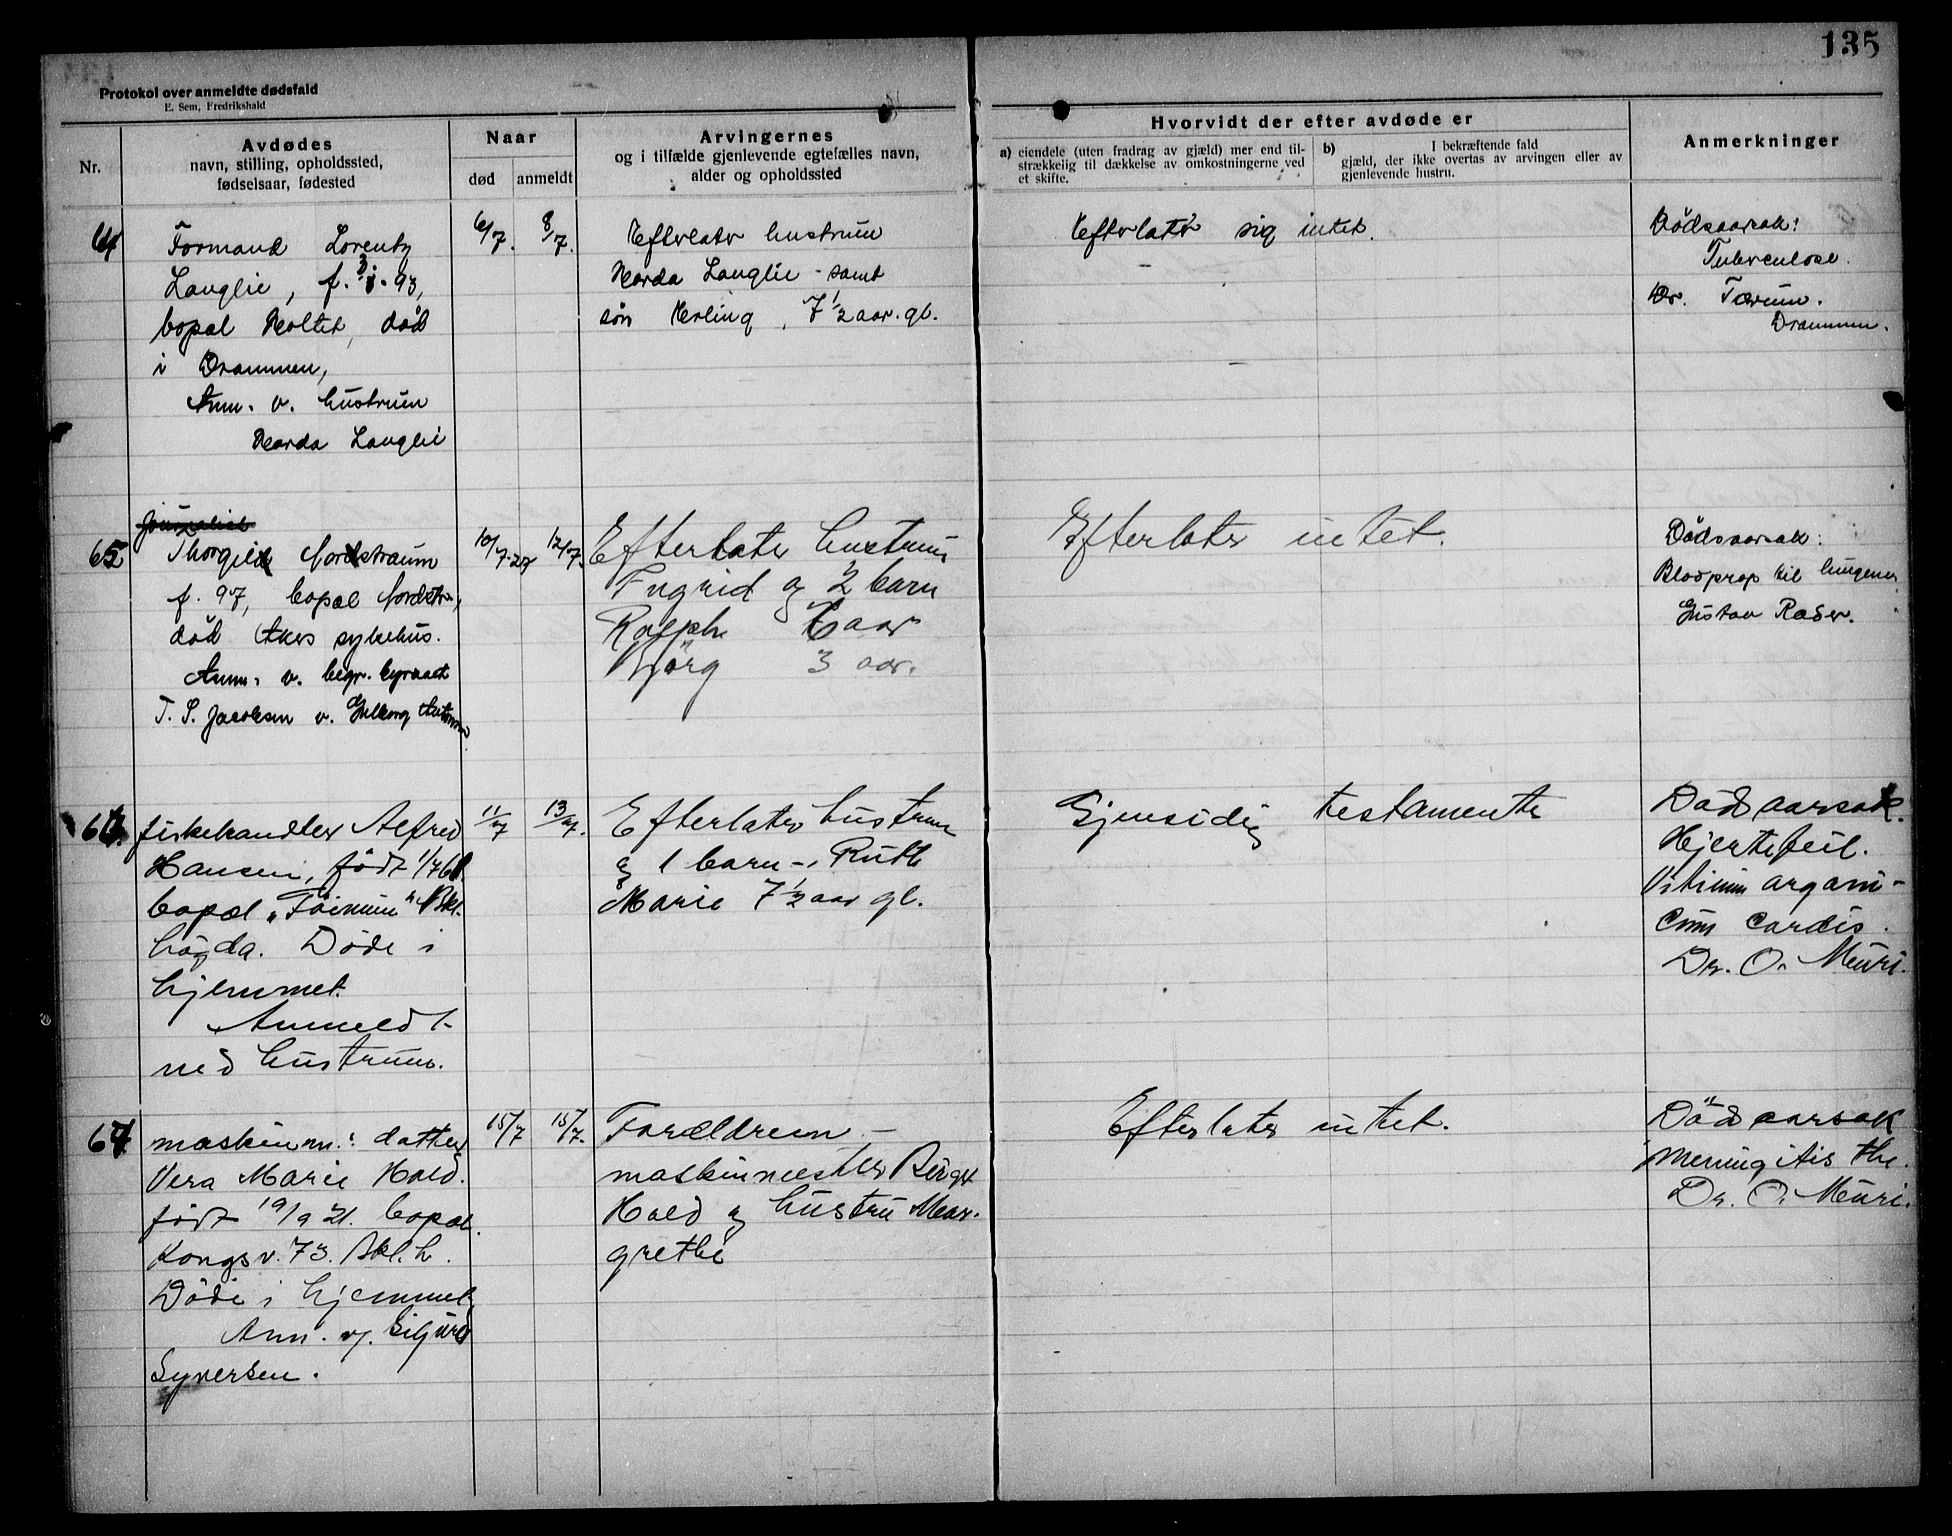 135
Protokol over anmeldte dødsfald
E. Sem, Fredrikshald
Nr.
Avdødes
navn, stilling, opholdssted,
fødselsaar, fødested
Naar
død
anmeldt
Arvingernes
og i tilfælde gjenlevende egtefælles navn,
alder og opholdssted
Hvorvidt der efter avdøde er
a) eiendele (uten fradrag av gjæld) mer end til-
strækkelig til dækkelse av omkostningerne ved
et skifte.
b) I bekræftende fald
gjæld, der ikke overtas av arvingen eller av
gjenlevende hustru.
Anmerkninger
64
Formand Lorentz
Langlie, f. 93,
bopæl Holtet, död
i Drammen,
Anm. v. hustruen
Harda Langlie
6/7.
8/7.
Efterlater hustruen
Harda Langlie - samt
sön Erling, 7 1/2 aar. gl.
Efterlater sig intet.
Dödsaarsak:
Tuberculose.
Dr. Tærum.
Drammen.
65
Journalist
Thorgils Nordstraum
f. 97, bopæl Nordstr.,
död Akers sykehus.
Anm. v. begr. byraaet
T. S. Jacobsen v.
10/7-27
12/7.
Efterlater hustruen
Ingrid og 2 barn
Ralph 6 aar
Björg 3 aar.
Efterlater intet.
Dödsaarsak:
Blodprop til lungene
Gustav Raser.
66.
fiskehandler Alfred
Hansen, født
bopæl " Bkl.
högda. Döde i
hjemmet.
Anmeldt
ved hustruen.
11/7
13/7.
Efterlater hustruen
og 1 barn -, Ruth
Marie 7 1/2 aar gl.
Gjensidig testamente
Dödsaarsak.
Hjertefeil.
Vitium organi-
cum cordis.
Dr. O. Meuri.
67
maskinm.: datter
Vera Marie Hald.
født 19/9 21. bopæl
Kongsv. 73. Bkl. h.
Döde i hjemmet,
Ann. v. Sigurd
Syversen.
15/7
15/7.
Forældrene -
maskinmester Birger
Hald og hustru Mar-
grethe
Efterlater intet.
Dödsaarsak
meningitis tbc.
Dr. O. Meuri.